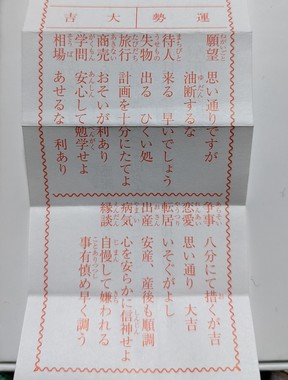 運勢 大吉
願望 思い通りですが
油断するな
待人 来る 早いでしょう
失物 出る ひくい処
旅行 計画を十分にたてよ
商売 おそいが利あり
学問 安心して勉学せよ
相場 あせるな 利あり
争事 八分にて措くが吉
恋愛 思い通り 大吉
転居 いそぐがよし
出産 安産、産後も順調
病気 心を安らかに信神せよ
縁談 自慢して嫌われる
事有慎め早く調う